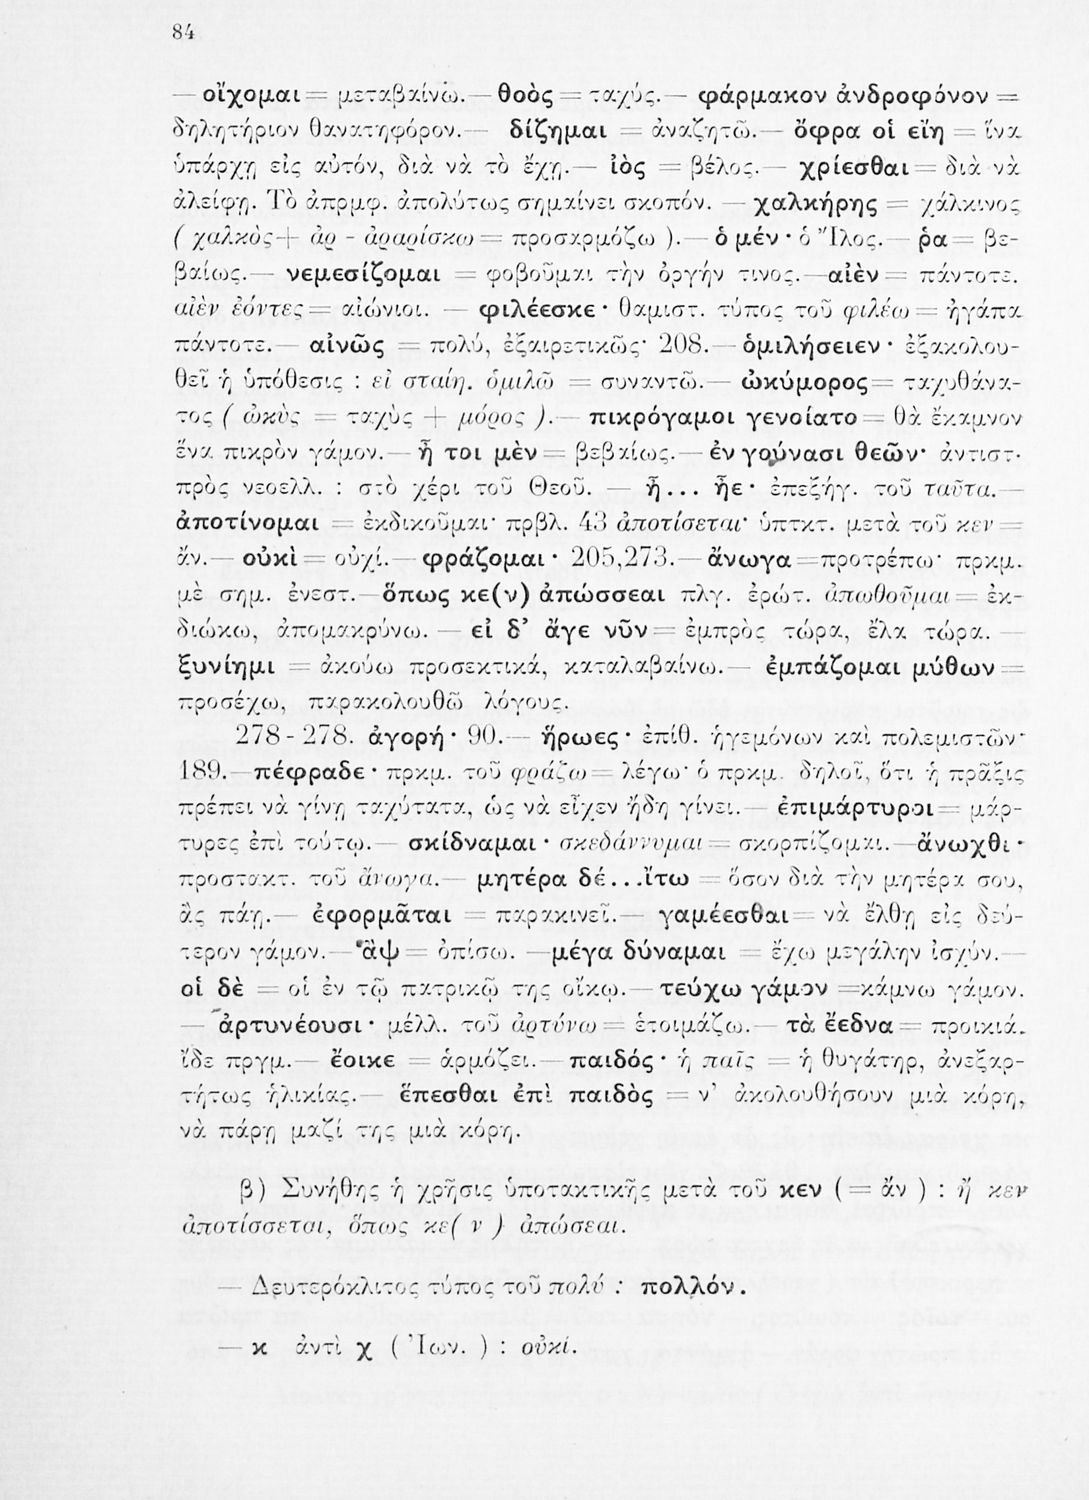 84
— οἴχομαι = μεταβαίνω. — θοὸς = ταχύς. — φάρμακον ἀνδροφόνον =
δηλητήριον θανατηφόρον. — δίζημαι = ἀναζητῶ. — ὄφρα οἱ εἴη = ἵνα
ὑπάρχῃ εἰς αὐτόν, διὰ νὰ τὸ ἔχῃ. — ἰὸς = βέλος. — χρίεσθαι = διὰ νὰ
ἀλείφῃ. Τὸ ἀπρμφ. ἀπολύτως σημαίνει σκοπόν. — χαλκήρης = χάλκινος
( χαλκὸς + ἀρ - ἀραρίσκω = προσαρμόζω ). — ὁ μέν · ὁ Ἴλος. — ῥα = βε-
βαίως. — νεμεσίζομαι = φοβοῦμαι τὴν ὀργήν τινος. — αἰὲν = πάντοτε.
αἰὲν ἐόντες = αἰώνιοι. — φιλέεσκε · θαμιστ. τύπος τοῦ φιλέω = ἠγάπα
πάντοτε. — αἰνῶς = πολύ, ἐξαιρετικῶς· 208. — ὁμιλήσειεν · ἐξακολου-
θεῖ ἡ ὑπόθεσις : εἰ σταίη. ὁμιλῶ = συναντῶ. — ὠκύμορος = ταχυθάνα-
τος ( ὠκὺς = ταχὺς + μόρος ). — πικρόγαμοι γενοίατο = θὰ ἔκαμνον
ἕνα πικρὸν γάμον. — ἦ τοι μὲν = βεβαίως. — ἐν γούνασι θεῶν· ἀντιστ.
πρὸς νεοελλ. : στὸ χέρι τοῦ Θεοῦ. — ἦ... ἦε · ἐπεξήγ. τοῦ ταῦτα. —
ἀποτίνομαι = ἐκδικοῦμαι· πρβλ. 43 ἀποτίσεται· ὑπτκτ. μετὰ τοῦ κεν =
ἄν. — οὐκὶ = οὐχί. — φράζομαι · 205,273. — ἄνωγα = προτρέπω· πρκμ.
μὲ σημ. ἐνεστ. — ὅπως κε(ν) ἀπώσσεαι πλγ. ἐρώτ. ἀπωθοῦμαι = ἐκ-
διώκω, ἀπομακρύνω. — εἰ δ' ἄγε νῦν = ἐμπρὸς τώρα, ἔλα τώρα. —
ξυνίημι = ἀκούω προσεκτικά, καταλαβαίνω. — ἐμπάζομαι μύθων =
προσέχω, παρακολουθῶ λόγους.
278 - 278. ἀγορή · 90. — ἥρωες · ἐπίθ. ἡγεμόνων καὶ πολεμιστῶν·
189. — πέφραδε · πρκμ. τοῦ φράζω = λέγω· ὁ πρκμ. δηλοῖ, ὅτι ἡ πρᾶξις
πρέπει νὰ γίνῃ ταχύτατα, ὡς νὰ εἶχεν ἤδη γίνει. — ἐπιμάρτυροι = μάρ-
τυρες ἐπὶ τούτῳ. — σκίδναμαι · σκεδάννυμαι = σκορπίζομαι. — ἄνωχθι ·
προστακτ. τοῦ ἄνωγα. — μητέρα δέ...ἴτω = ὅσον διὰ τὴν μητέρα σου,
ἂς πάῃ. — ἐφορμᾶται = παρακινεῖ. — γαμέεσθαι = νὰ ἔλθῃ εἰς δεύ-
τερον γάμον. — ἂψ = ὀπίσω. — μέγα δύναμαι = ἔχω μεγάλην ἰσχύν. —
οἱ δὲ = οἱ ἐν τῷ πατρικῷ της οἴκῳ. — τεύχω γάμον = κάμνω γάμον.
— ἀρτυνέουσι · μέλλ. τοῦ ἀρτύνω = ἑτοιμάζω. — τὰ ἔεδνα = προικιά.
ἴδε πργμ. — ἔοικε = ἁρμόζει. — παιδός · ἡ παῖς = ἡ θυγάτηρ, ἀνεξαρ-
τήτως ἡλικίας. — ἕπεσθαι ἐπὶ παιδὸς = ν' ἀκολουθήσουν μιὰ κόρη,
νὰ πάρῃ μαζί της μιὰ κόρη.
β) Συνήθης ἡ χρῆσις ὑποτακτικῆς μετὰ τοῦ κεν ( = ἄν ) : ἤ κεν
ἀποτίσσεται, ὅπως κε( ν ) ἀπώσεαι.
— Δευτερόκλιτος τύπος τοῦ πολύ : πολλόν.
— κ ἀντὶ χ ( Ἰων. ) : οὐκί.